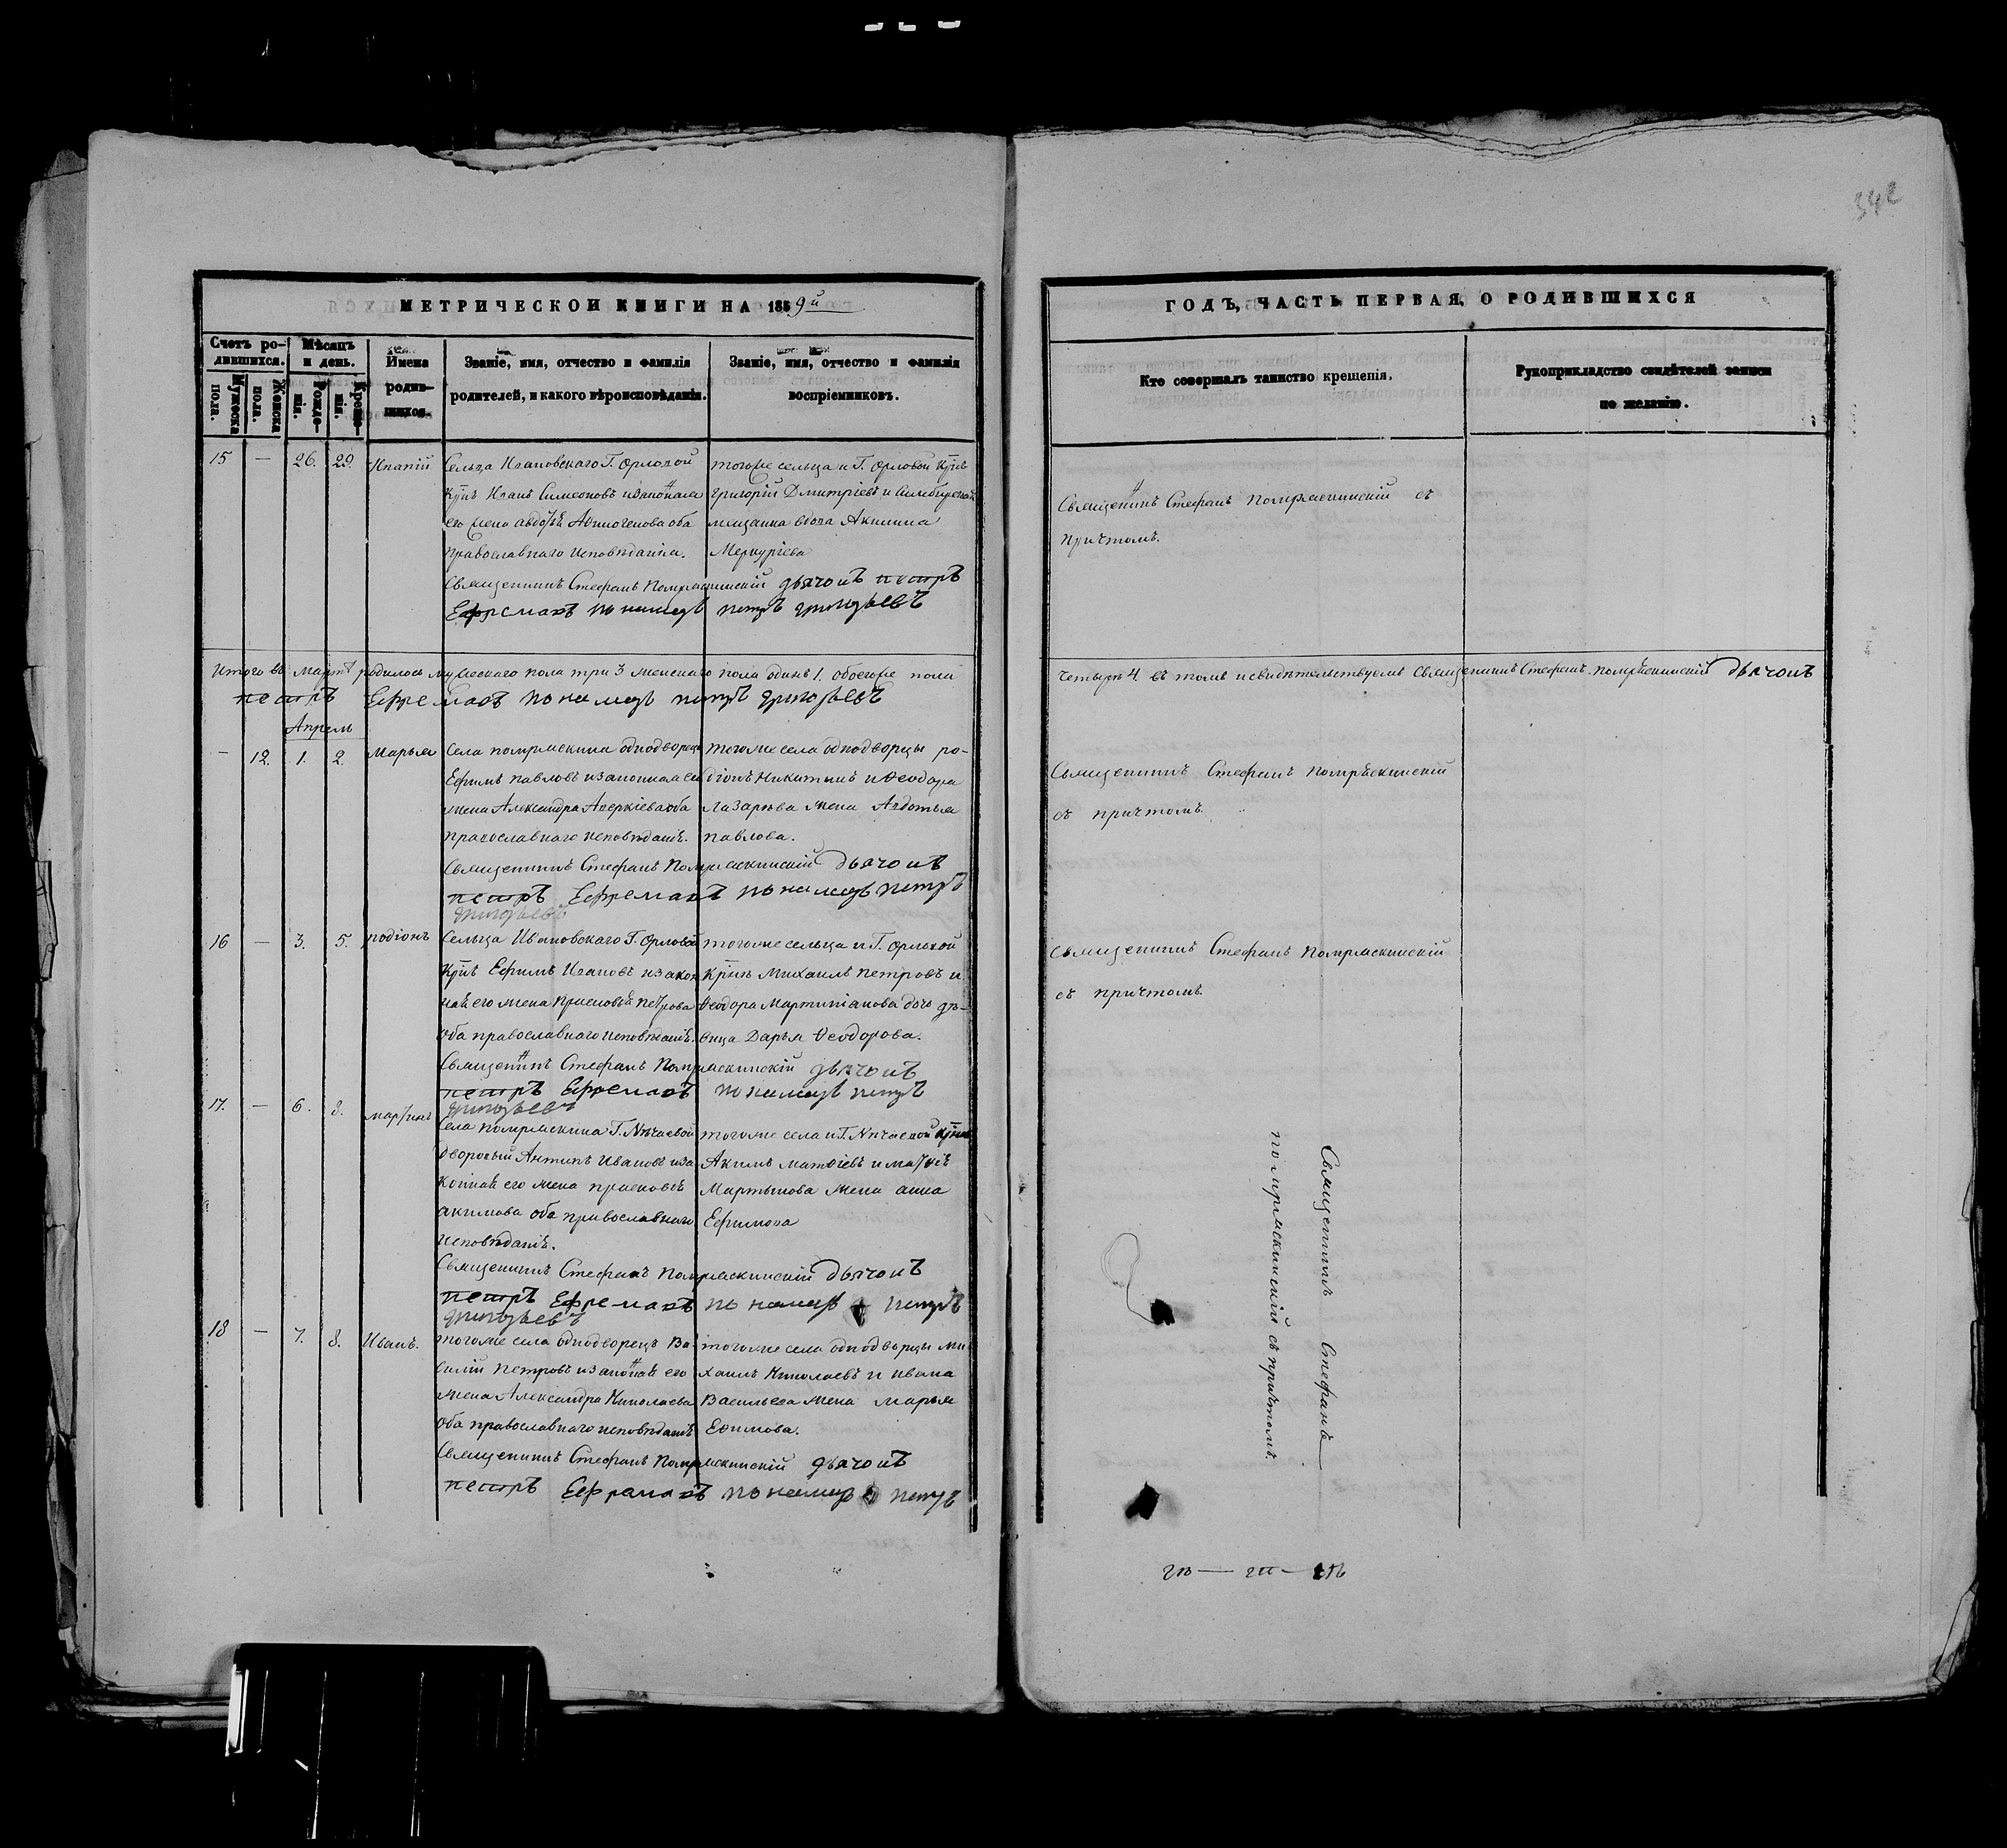 342
МЕТРИЧЕСКОЙ КНИГИ НА 1859й
Счетъ родившихся.
Мѣсяцъ и день.
Имена родившихся.
Званіе, имя, отчество и фамилія
родителей, и какого вѣроисповѣданія.
Званіе, имя, отчество и фамилія
воспріемниковъ.
Мужеска пола.
Женска пола.
Рожденія.
Крещенія.
15 — 26. 29. Ипатій
Сельца Ивановскаго Г. Орловой
Крн҃ъ Иванъ Симеоновъ и законная
его жена Авдотья Афиногенова оба
православнаго исповѣданія.
тогоже сельца и Г. Орловой Крн҃ъ
Григорій Дмитріевъ и Симбирская
мещанка вдова Акилина
Меркуріева
Священникъ Стефанъ Помряскинскій дьячокъ петръ
Ефремовъ пономарь петръ григорьевъ
Итого въ Мартѣ родилось мужескаго пола три 3 женскаго пола одинъ 1. обоегоже пола
петръ Ефремовъ пономарь петръ григорьевъ
Апрель
— 12. 1. 2. Марья
Села помряскина однодворецъ
Ефимъ павловъ и законная его
жена Александра Аверкіева оба
православнаго исповѣданія.
тогоже села однодворцы ро-
діонъ Никитинъ и Ѳеодора
Лазарева жена Авдотья
павлова.
Священникъ Стефанъ Помряскинскій дьячокъ
петръ Ефремовъ пономарь петръ
григорьевъ
16 — 3. 5. родіонъ
Сельца Ивановскаго Г. Орловой
Крн҃ъ Ефимъ Ивановъ и закон
ная его жена Прасковья петрова
оба православнаго исповѣданія.
тогоже сельца и Г. Орловой
Крн҃ъ Михаилъ петровъ и
Ѳеодора Мартиніанова дочь дѣ-
вица Дарья Ѳеодорова.
Священникъ Стефанъ Помряскинскій дьячокъ
петръ Ефремовъ пономарь петръ
григорьевъ
17. — 6. 8. мартинъ
Села помряскина Г. Нѣчаевой
дворовый Антипъ Ивановъ и за
конная его жена прасковья
акимова оба православнаго
исповѣданія.
тогоже села и Г. Нѣчаевой Крн҃ъ
Акимъ матвіевъ и
Мартынова жена анна
Ефимова
Священникъ Стефанъ Помряскинскій дьячокъ
петръ Ефремовъ пономарь петръ
григорьевъ
18 — 7. 8. Иванъ.
тогоже села однодворецъ Ва-
силій петровъ и законная его
жена Александра Николаева
оба православнаго исповѣданія
тогоже села однодворцы Ми-
хаилъ Николаевъ и ивана
Васильева жена марья
Ефимова.
Священникъ Стефанъ Помряскинскій дьячокъ
петръ Ефремовъ пономарь петръ
ГОДЪ, ЧАСТЬ ПЕРВАЯ, О РОДИВШИХСЯ
Кто совершалъ таинство крещенія.
Рукоприкладство свидѣтелей записи
по желанію.
Священникъ Стефанъ помряскинскій съ
причтомъ.
Четыре 4 въ томъ и свидѣтельствуемъ Священникъ Стефанъ помряскинскій дьячокъ
Священникъ Стефанъ помряскинскій
съ причтомъ.
Священникъ Стефанъ помряскинскій
съ причтомъ.
Священникъ Стефанъ
помряскинскій съ причтомъ.